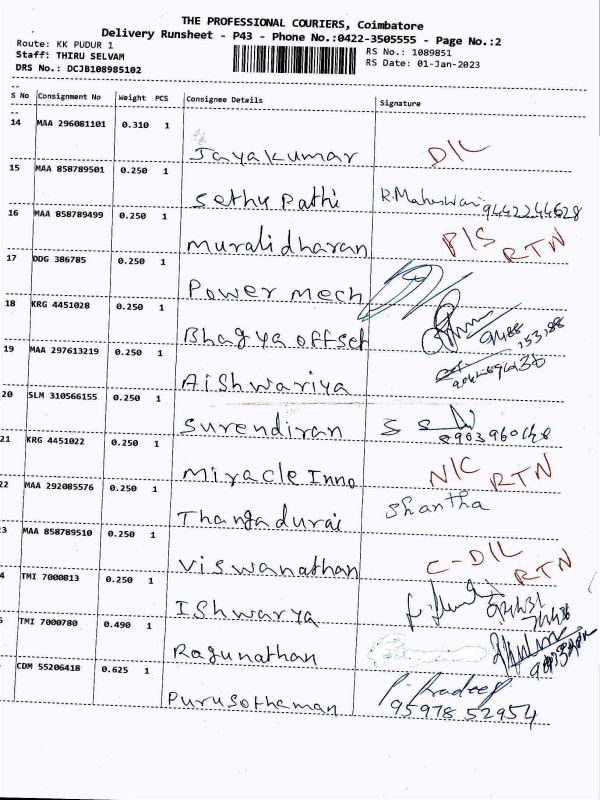 THE PROFESSIONAL COURIERS, Coimbatore
Delivery Runsheet - P43 - Phone No.:0422-3505555 - Page No.:2
Route: KK PUDUR 1
RS No.: 1089851
Staff: THIRU SELVAM
RS Date: 01-Jan-2023
DRS No.: DCJB108985102
S No Consignment No Weight PCS Consignee Details Signature
14 MAA 296081101 0.310 1
Jayakumar D/L
15 MAA 858789501 0.250 1
Sethu Pathi R.Maheswari 9442244628
16 MAA 858789499 0.250 1
Muralidharan P/S RTN
17 DDG 386785 0.250 1
Power mech
18 KRG 4451028 0.250 1
Bhagya offset
19 MAA 297613219 0.250 1
Aishwariya
20 SLM 310566155 0.250 1
Surendiran
21 KRG 4451022 0.250 1
Miracle Inno N/C RTN
22 MAA 292085576 0.250 1
Thangadurai Shantha
3 MAA 858789510 0.250 1
Viswanathan C-D/L RTN
4 TMI 7000813 0.250 1
Ishwarya
5 TMI 7000780 0.490 1
Ragunathan
CDM 55206418 0.625 1
Purusothaman P. Pradeep
95978 52954